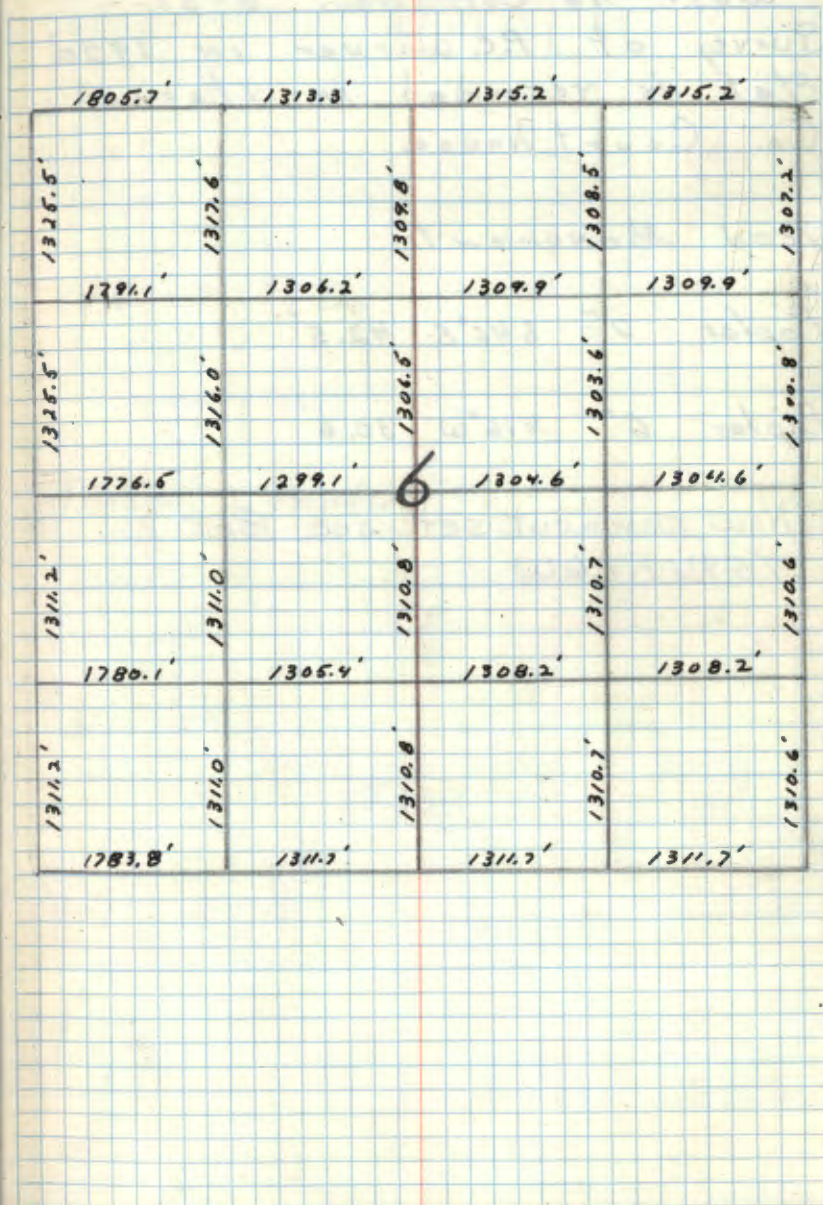 1805.7' 1313.3' 1315.2' 1315.2'
1325.5' 1317.6' 1309.8' 1308.5' 1307.2'
1791.1' 1306.2' 1309.9' 1309.9'
1325.5' 1316.0' 1306.5' 1303.6' 1300.8'
1776.5 1299.1' 6 1304.6' 1304.6'
1311.2' 1311.0' 1310.8' 1310.7' 1310.6'
1780.1' 1305.4' 1308.2' 1308.2'
1311.2' 1311.0' 1310.8' 1310.7' 1310.6'
1783.8' 1311.7' 1311.7' 1311.7'